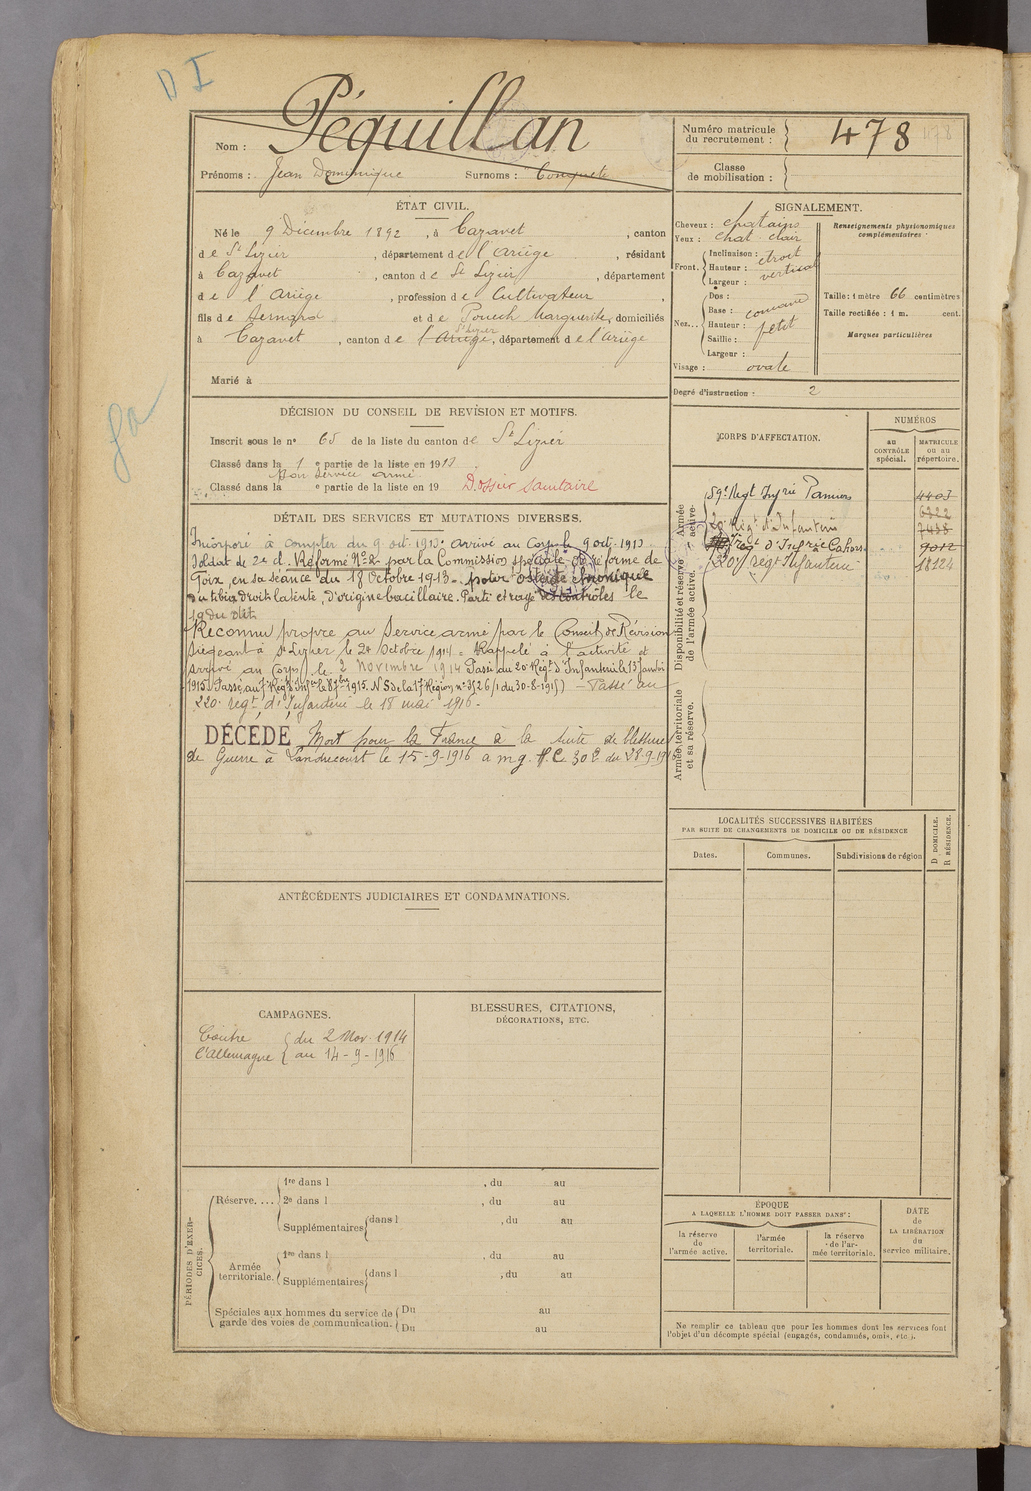 D I
Nom : Péquillan
Prénoms : Jean Dominique Surnoms :
Numéro matricule du recrutement : 478
Classe de mobilisation :
ÉTAT CIVIL.
Né le 9 Décembre 1892, à Cazavet, canton
de St Lizier, département de l'Ariège, résidant
à Cazavet, canton de St Lizier, département
de l'Ariège, profession de Cultivateur,
fils de Bernard et de Pouech Marguerite, domiciliés
St Lizier
à Cazavet, canton de l'Ariège, département de l'Ariège
Marié à
SIGNALEMENT.
Cheveux : chatains
Yeux : chat. clair
Front. Inclinaison : étroit
Hauteur : vertical
Largeur :
Nez... Dos :
Base :
Hauteur : petit
Saillie :
Largeur :
Visage : ovale
Renseignements physionomiques
complémentaires :
Taille : 1 mètre 66 centimètres
Taille rectifiée : 1 m. cent.
Marques particulières
Degré d'instruction : 2
DÉCISION DU CONSEIL DE REVISION ET MOTIFS.
Inscrit sous le n° 65 de la liste du canton de St Lizier
Classé dans la 1 e partie de la liste en 1913
Bon service armé
Classé dans la e partie de la liste en 19 Dossier sanitaire
DÉTAIL DES SERVICES ET MUTATIONS DIVERSES.
Incorporé à compter du 9 oct. 1913. Arrivé au Corps le 9 oct. 1913
Soldat de 2e cl. Réformé N° 2 par la Commission spéciale de réforme de
Foix, en sa séance du 18 Octobre 1913. pour Ostéite chronique
du tibia droit latente, d'origine bacillaire. Parti et rayé des contrôles le
19 du dit.
Reconnu propre au Service armé par le Conseil de Révision
siégeant à St Lizier le 24 Octobre 1914 = Rappelé à l'activité et
arrivé au Corps le 2 Novembre 1914 Passé au 20e Régt d'Infanterie le 13 Janvier
1915. Passé au 7e Régt d'Infie le 8 7bre 1915. N S de la 17e Région n° 3526/1 du 30-8-1915) - Passé au
220e régt d'Infanterie le 18 mai 1916.
DÉCÉDÉ Mort pour la France à la suite de blessures
de Guerre à Landrecourt le 15-9-1916
CORPS D'AFFECTATION.
NUMÉROS
au CONTRÔLE spécial.
MATRICULE ou au répertoire.
Armée active.
Disponibilité et réserve de l'armée active.
Armée territoriale et sa réserve.
59e Régt Infrie Pamiers 4403
20e Régt d'Infanterie 6322
7438
7e régt d'Infrie à Cahors 9012
220e régt Infanterie 18124
LOCALITÉS SUCCESSIVES HABITÉES
PAR SUITE DE CHANGEMENTS DE DOMICILE OU DE RÉSIDENCE
Dates. Communes. Subdivisions de région
D DOMICILE.
R RÉSIDENCE.
ANTÉCÉDENTS JUDICIAIRES ET CONDAMNATIONS.
CAMPAGNES.
Contre du 2 Nov. 1914
l'Allemagne au 14-9-1916
BLESSURES, CITATIONS,
DÉCORATIONS, ETC.
PÉRIODES D'EXERCICES.
Réserve.... 1re dans l , du au
2e dans l , du au
Supplémentaires dans l , du au
Armée territoriale. 1re dans l , du au
Supplémentaires dans l , du au
Spéciales aux hommes du service de garde des voies de communication. Du au
Du au
ÉPOQUE
A LAQUELLE L'HOMME DOIT PASSER DANS :
la réserve de l'armée active.
l'armée territoriale.
la réserve de l'armée territoriale.
DATE
de
LA LIBÉRATION
du
service militaire.
Ne remplir ce tableau que pour les hommes dont les services font
l'objet d'un décompte spécial (engagés, condamnés, omis, etc.).